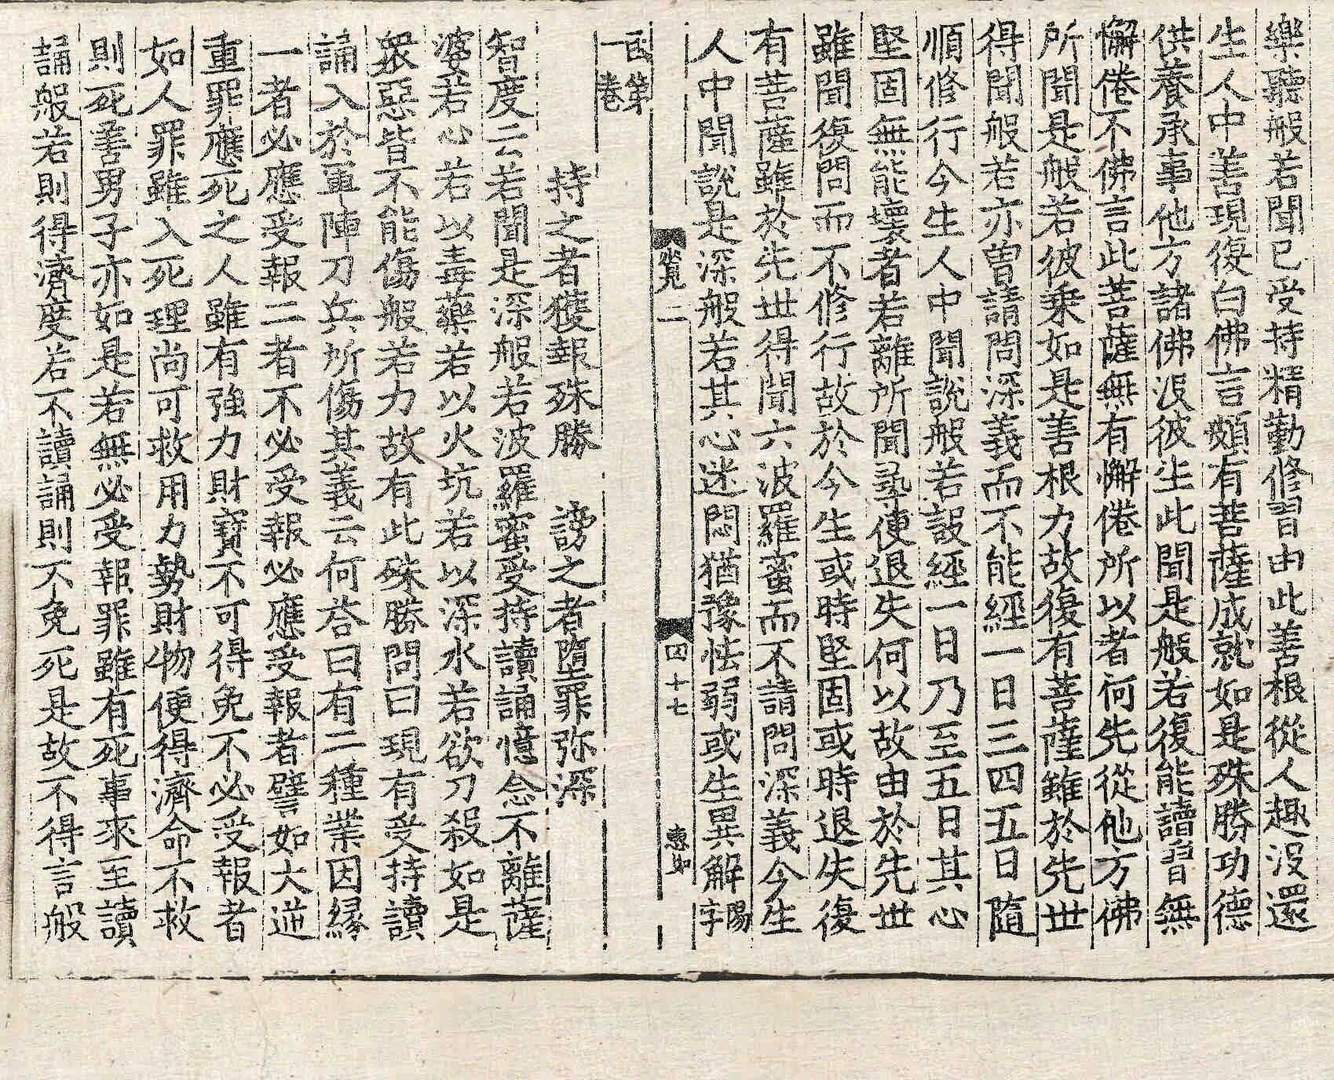 樂聽般若聞已受持精勤修習由此善根從人趣沒還
生人中善現復白佛言頗有菩薩成就如是殊勝功德
供養承事他方諸佛沒彼生此聞是般若復能讀習無
懈倦不佛言此菩薩無有懈倦所以者何先從他方佛
所聞是般若彼乘如是善根力故復有菩薩雖於先世
得聞般若亦曾請問深義而不能經一日三四五日隨
順修行今生人中聞說般若設經一日乃至五日其心
堅固無能壞者若離所聞尋便退失何以故由於先世
雖聞復問而不修行故於今生或時堅固或時退失復
有菩薩雖於先世得聞六波羅蜜而不請問深義今生
人中聞說是深般若其心迷悶猶豫怯弱或生異解 陽字
函第一卷
覽二 四十七
持之者獲報殊勝 謗之者墮罪弥深
智度云若聞是深般若波羅蜜受持讀誦憶念不離薩
婆若心若以毒藥若以火坑若以深水若欲刀殺如是
衆惡皆不能傷般若力故有此殊勝問曰現有受持讀
誦入於軍陣刀兵所傷其義云何荅曰有二種業因緣
一者必應受報二者不必受報必應受報者譬如大逆
重罪應死之人雖有強力財寶不可得免不必受報者
如人罪雖入死理尚可救用力勢財物便得濟命不救
則死善男子亦如是若無必受報罪雖有死事來至讀
誦般若則得濟度若不讀誦則不免死是故不得言般